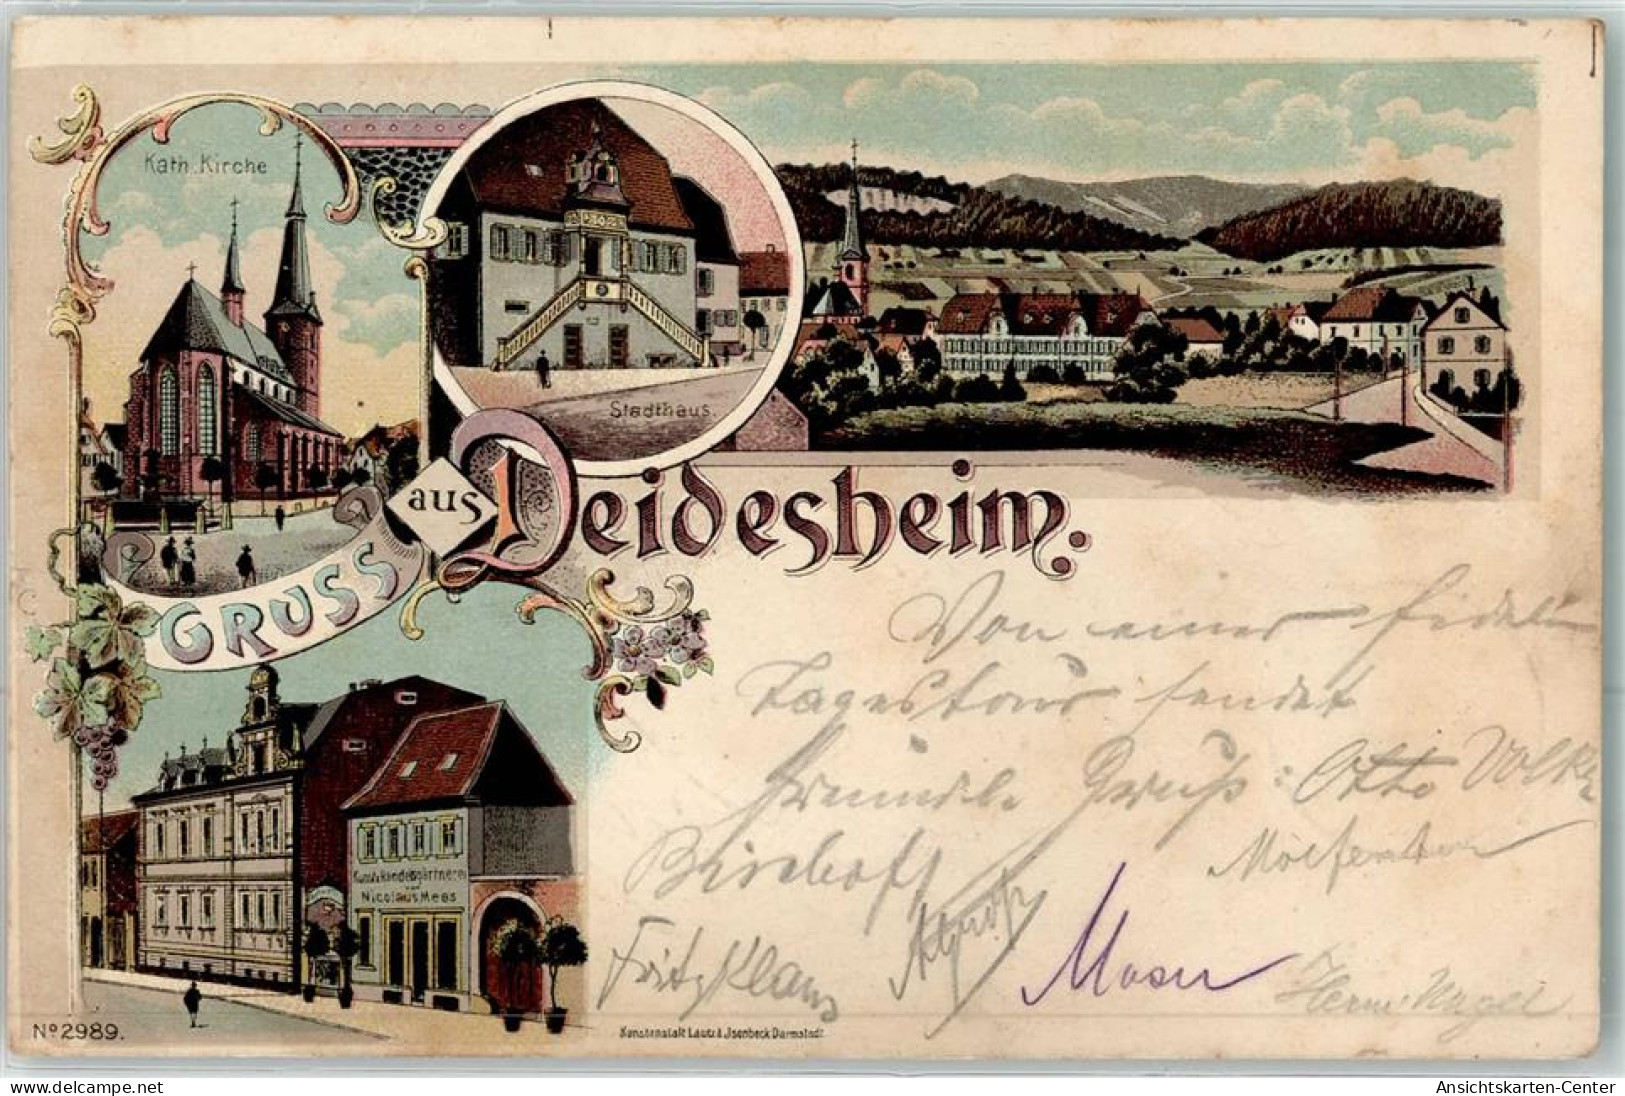 Kath. Kirche
Stadthaus.
GRUSS
aus Deidesheim.
Kunst & Handelsgärtnerei
von
Nicolaus Mees
Von einer fidelen
Tagestour sendet
freundl. Gruß: Otto Volk
Bischoff
Fritz Klaus
Moser
Herm. Nagel
No 2989.
Kunstanstalt Lautz & Jsenbeck Darmstadt.
delcampe.net
Ansichtskarten-Center